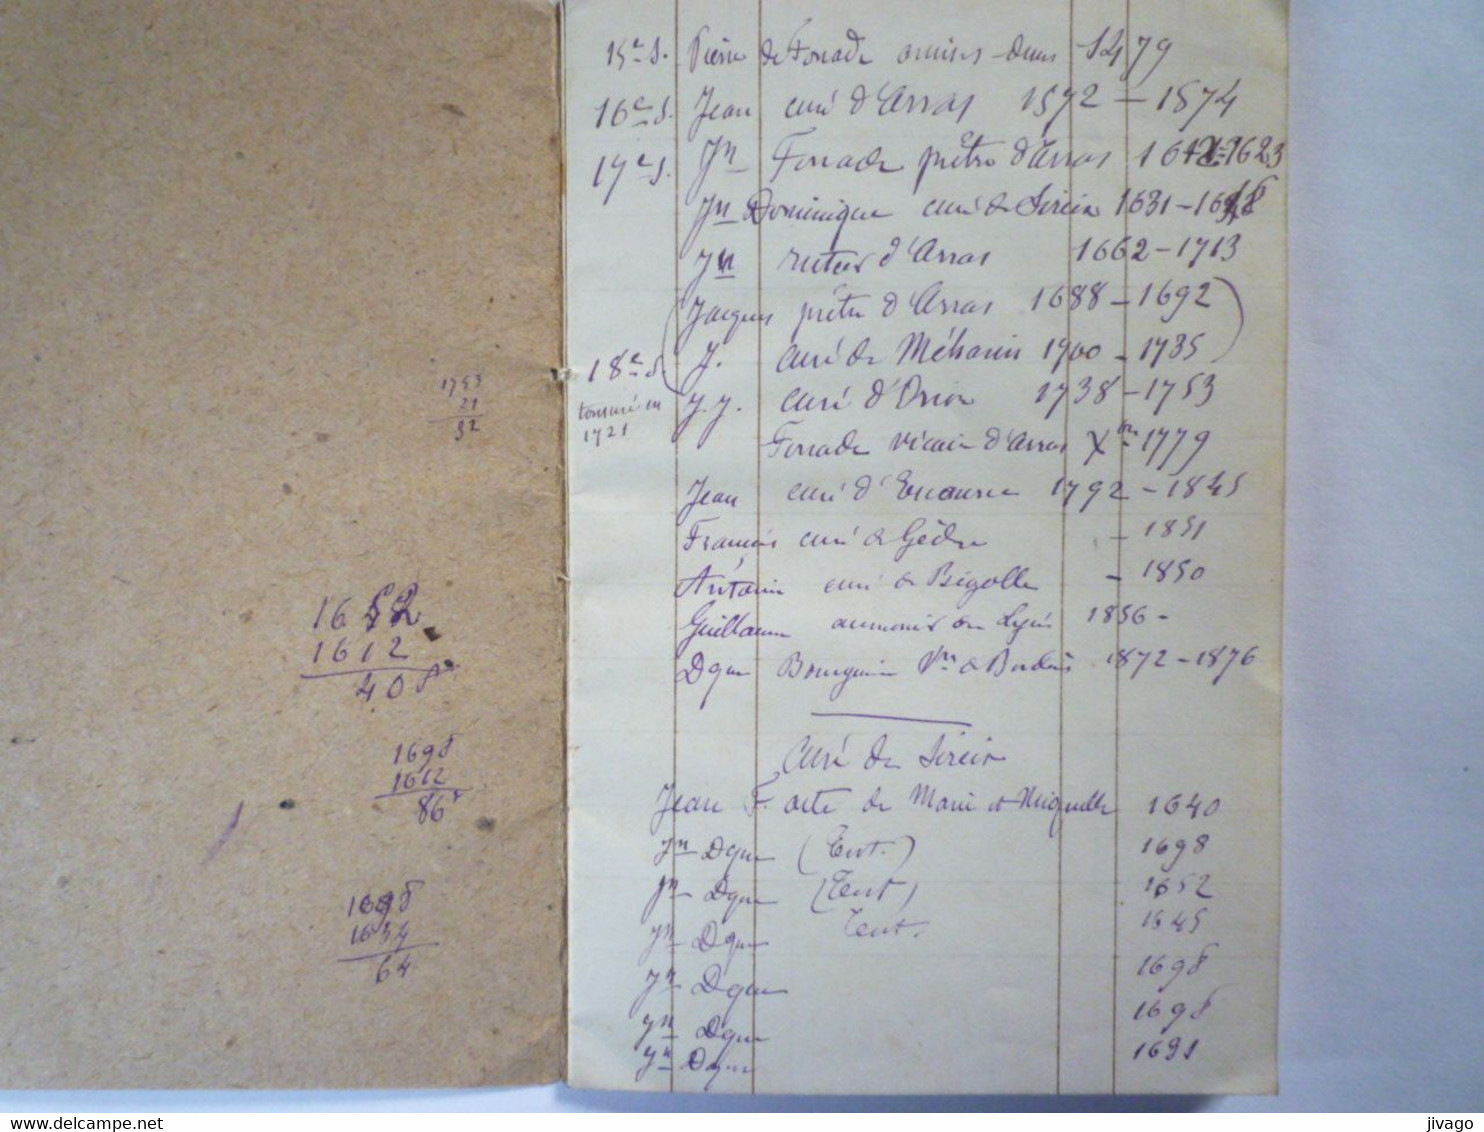 1753
21
32
1652
1612
40
1698
1612
86
1698
1634
64
15e S. Pierre de Forrade dans 1479
16e S. Jean curé d'Arras 1572 - 1574
17e S. Jn Forrade prêtre d'Arras 1612-1623
Jn Dominique curé de Sireix 1631-16
Jn d'Arras 1662-1713
Jacques prêtre d'Arras 1688-1692
18e S. J. curé de Méharin 1700-1735
tonsuré en 1721
J. J. curé d'Orion 1738-1753
Forrade vicaire d'Arras Xbre 1779
Jean curé d' 1792-1845
François curé de Gèdre - 1851
Antonin curé de Bégolle - 1850
Guillaume aumonier du Lycée 1856-
Dque 1872-1876
Curé de Sireix
Jean F. acte de Marie et Miquelle 1640
Jn Dque (Test.) 1698
Jn Dque (Test) 1652
Jn Dque Test. 1645
Jn Dque 1698
Jn Dque 1698
Jn Dque 1691
jivago